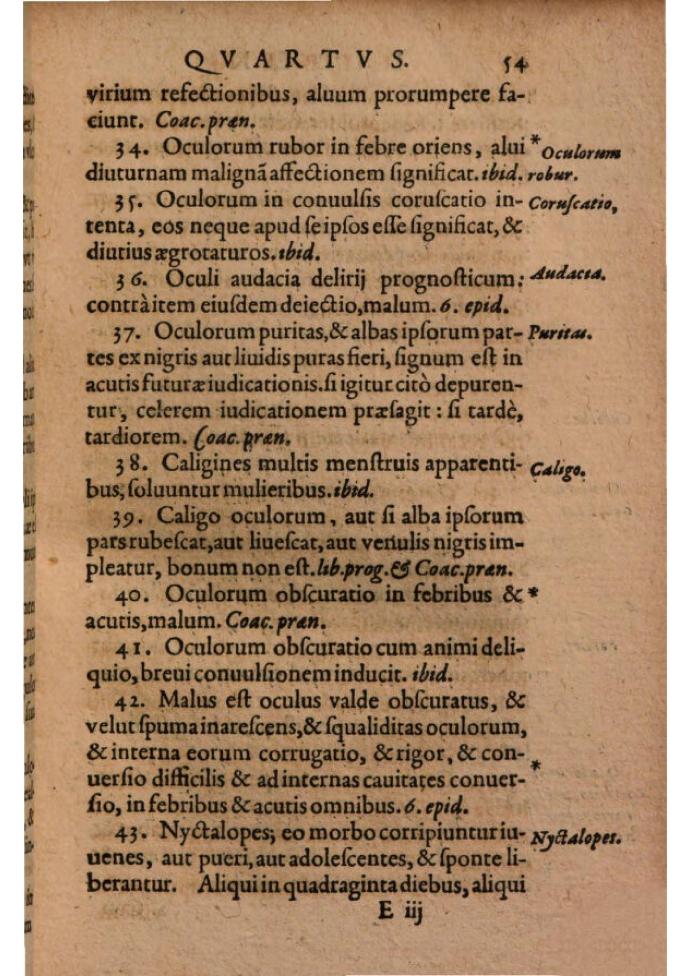 QVARTVS. 54
virium refectionibus, aluum prorumpere fa-
ciunt. Coac. præn.
34. Oculorum rubor in febre oriens, alui * Oculorum
diuturnam malignā affectionem ſignificat. ibid. robur.
35. Oculorum in conuulſis coruſcatio in- Coruſcatio,
tenta, eos neque apud ſe ipſos eſſe ſignificat, &
diutius ægrotaturos. ibid.
36. Oculi audacia delirij prognoſticum: Audacia.
contrà item eiuſdem deiectio, malum. 6. epid.
37. Oculorum puritas, & albas ipſorum par- Puritas.
tes ex nigris aut liuidis puras fieri, ſignum eſt in
acutis futuræ iudicationis. ſi igitur citò depuren-
tur, celerem iudicationem præſagit : ſi tardè,
tardiorem. Coac. præn.
38. Caligines multis menſtruis apparenti- Caligo.
bus, ſoluuntur mulieribus. ibid.
39. Caligo oculorum, aut ſi alba ipſorum
pars rubeſcat, aut liueſcat, aut venulis nigris im-
pleatur, bonum non eſt. lib. prog. & Coac. præn.
40. Oculorum obſcuratio in febribus & *
acutis, malum. Coac. præn.
41. Oculorum obſcuratio cum animi deli-
quio, breui conuulſionem inducit. ibid.
42. Malus eſt oculus valde obſcuratus, &
velut ſpuma inareſcens, & ſqualiditas oculorum,
& interna eorum corrugatio, & rigor, & con-
uerſio difficilis & ad internas cauitates conuer- *
ſio, in febribus & acutis omnibus. 6. epid.
43. Nyctalopes; eo morbo corripiuntur iu- Nyctalopes.
uenes, aut pueri, aut adoleſcentes, & ſponte li-
berantur. Aliqui in quadraginta diebus, aliqui
E iij